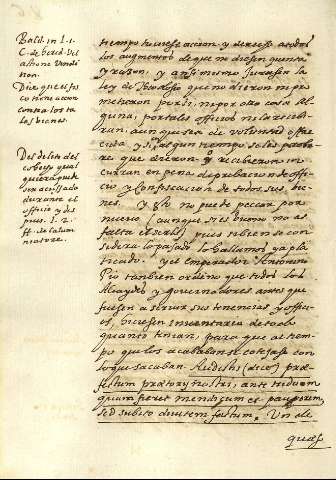 Bald. in l. 1.
C. de
non.
Dize que el fis
co tiene accion
contra los ta
les bienes.
Del delicto del
cohecho qual
quiera puede
ser acusado
durante el
officio y des
pues. l. 2.
ff. de calum
niatore.
tiempo tuviese accion, y derecho a todos
los augmentos de que no diesen quenta
y razon, y anti mismo jurasen la
ley de Theodosio que no dieron ni pro
metieron por si, ni por otra cosa al
guna, por tales officios ni lo recibi
ran, aunque sea de voluntad offre
cida y si algun tiempo se les proba
re que dieron, y recibieron in
curran en pena de privacion de offi
cio y confiscacion de todos sus bie
nes. y esto no puede peccar por
nuevo (aunque si es bueno no es
falta el serlo) pues si bien se con
sidera lo passado lo hallamos ya pla
ticado. y el emperador Antonino
Pio tambien ordeno que todos los
Alcaydes y governadores antes que
fuesen a servir sus tenencias y offici
os, hiciesen inventario de todo
quanto tenian, para que al tiem
po que los acababan se cotejase con
lo que sacaban. Redistis (dice) præ
fectum prætorij nostri, ante triduum
quam fieret mendicum et pauperem,
sed subito divitem factum. Un ele